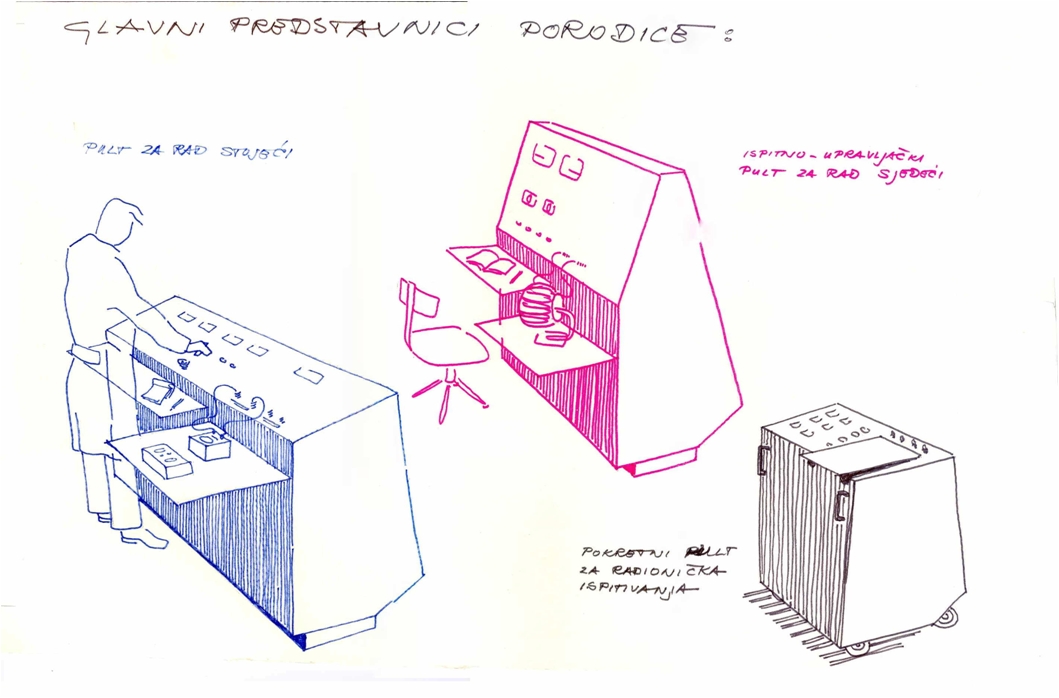 GLAVNI PREDSTAVNICI PORODICE:
PULT ZA RAD STOJEĆI
ISPITNO-UPRAVLJAČKI
PULT ZA RAD SJEDEĆI
POKRETNI PULT
ZA RADIONIČKA
ISPITIVANJA